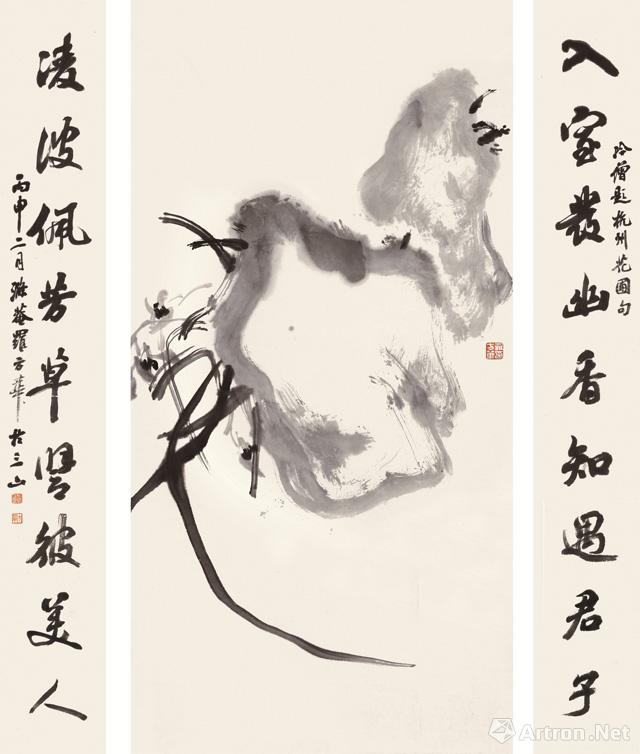 入室發幽香知遇君子
冷僧題杭州花圃句
凌波佩芳草譬彼美人
丙申二月滌菴羅方華於三山
Artron.Net